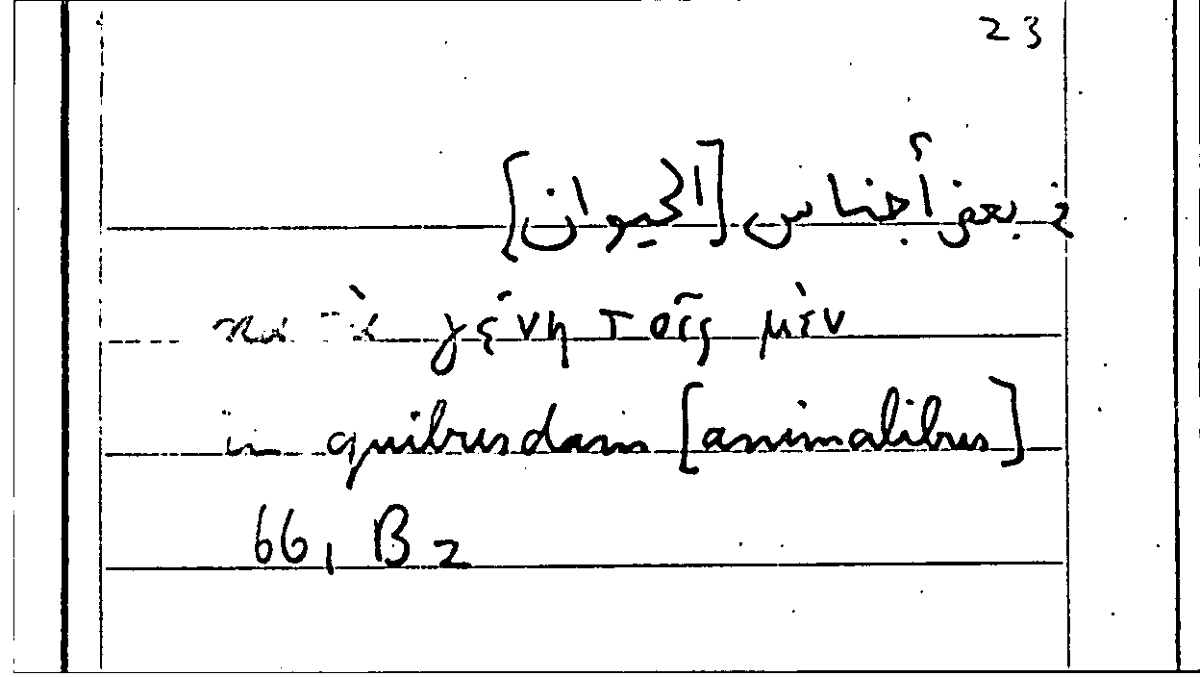 23
في بعض أجناس [الحيوان]
γένη τοῖς μὲν
in quibusdam [animalibus]
66, B 2